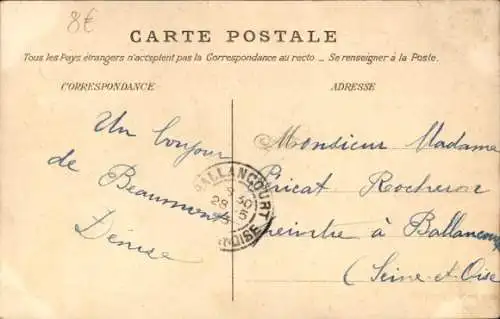 8€
CARTE POSTALE
Tous les Pays étrangers n'acceptent pas la Correspondance au recto _ Se renseigner à la Poste.
CORRESPONDANCE
ADRESSE
Un bonjour
de Beaumont
Denise
Monsieur Madame
Pricat Rocheron
peintre à Ballancourt
(Seine-et-Oise
BALLANCOURT
28 5